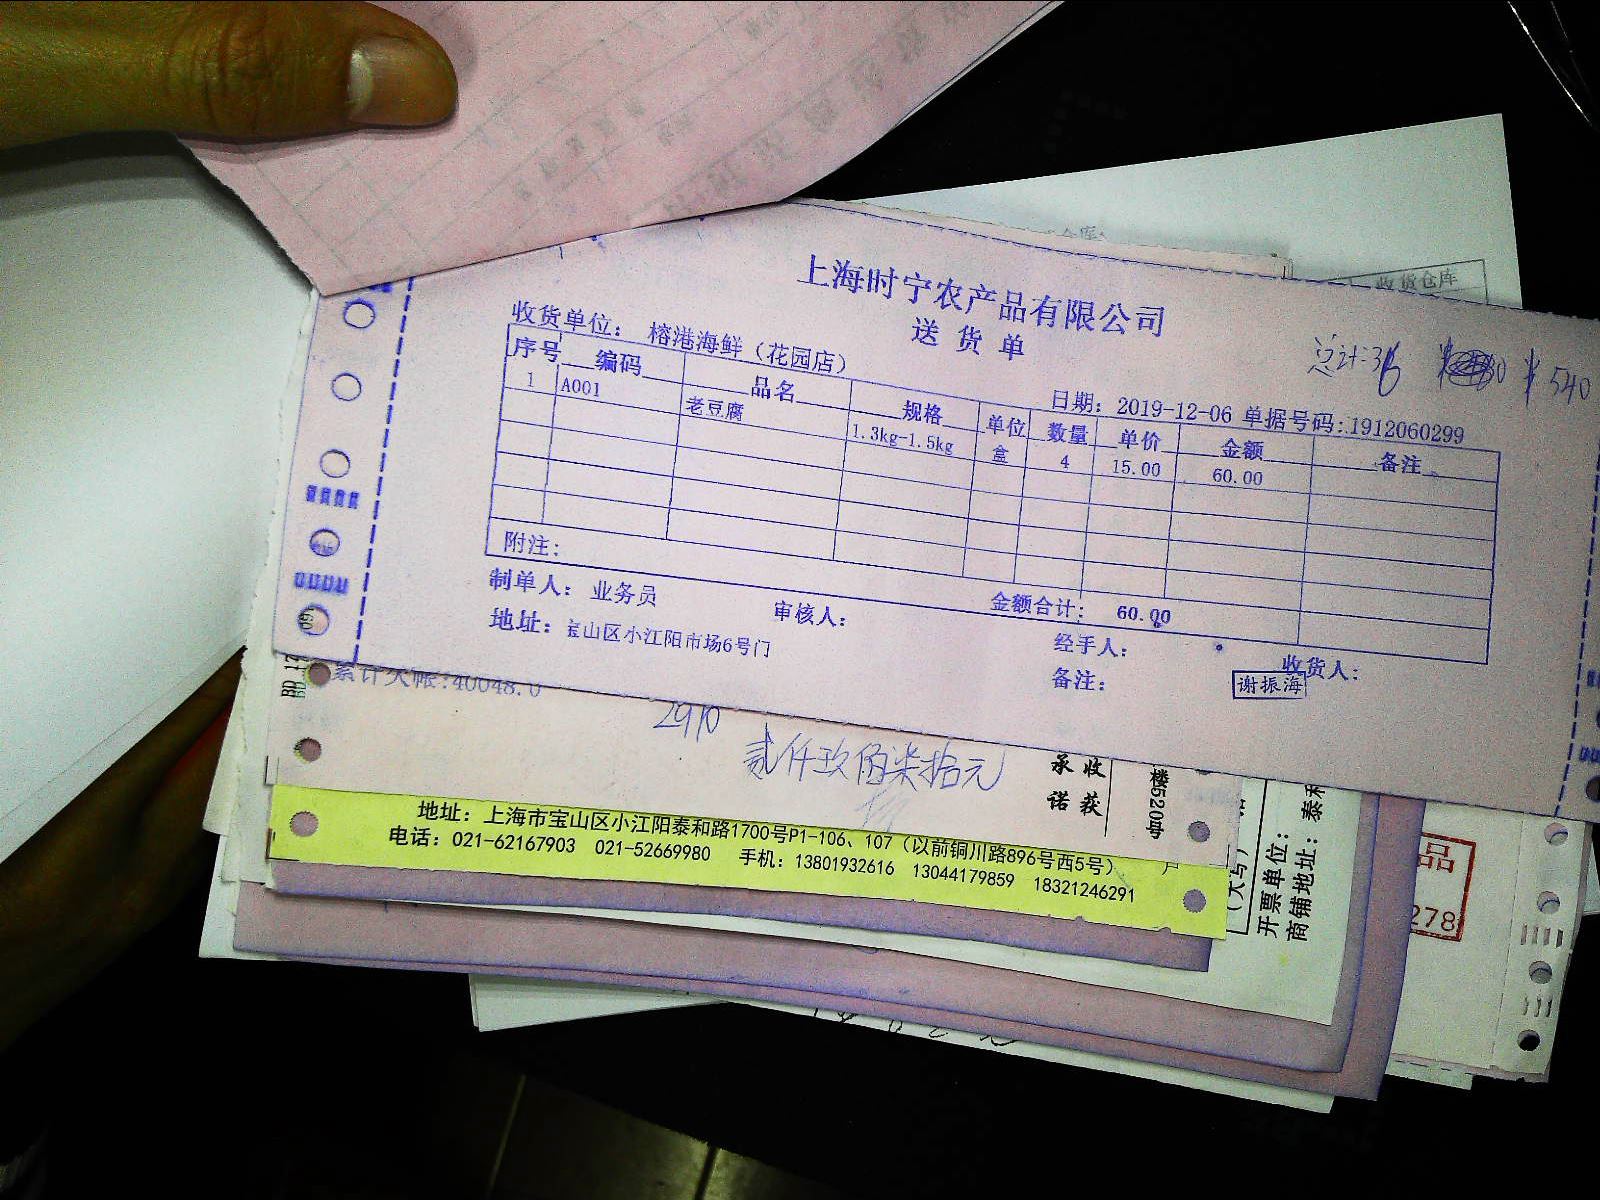 上海时宁农产品有限公司
送货单
总计:36 ¥540
收货单位: 榕港海鲜（花园店）
日期: 2019-12-06 单据号码:1912060299
序号 编码 品名 规格 单位 数量 单价 金额 备注
1 A001 老豆腐 1.3kg-1.5kg 盒 4 15.00 60.00
附注:
金额合计: 60.00
制单人: 业务员 审核人: 经手人: 收货人:
地址: 宝山区小江阳市场6号门 备注: 谢振海
收货仓库
累计欠帐:40048.0
2970
贰仟玖佰柒拾元
承诺
收获
楼520号
地址: 上海市宝山区小江阳泰和路1700号P1-106、107（以前铜川路896号西5号）
电话: 021-62167903 021-52669980 手机: 13801932616 13044179859 18321246291
(大写)
开票单位:
商铺地址: 泰和
品
278